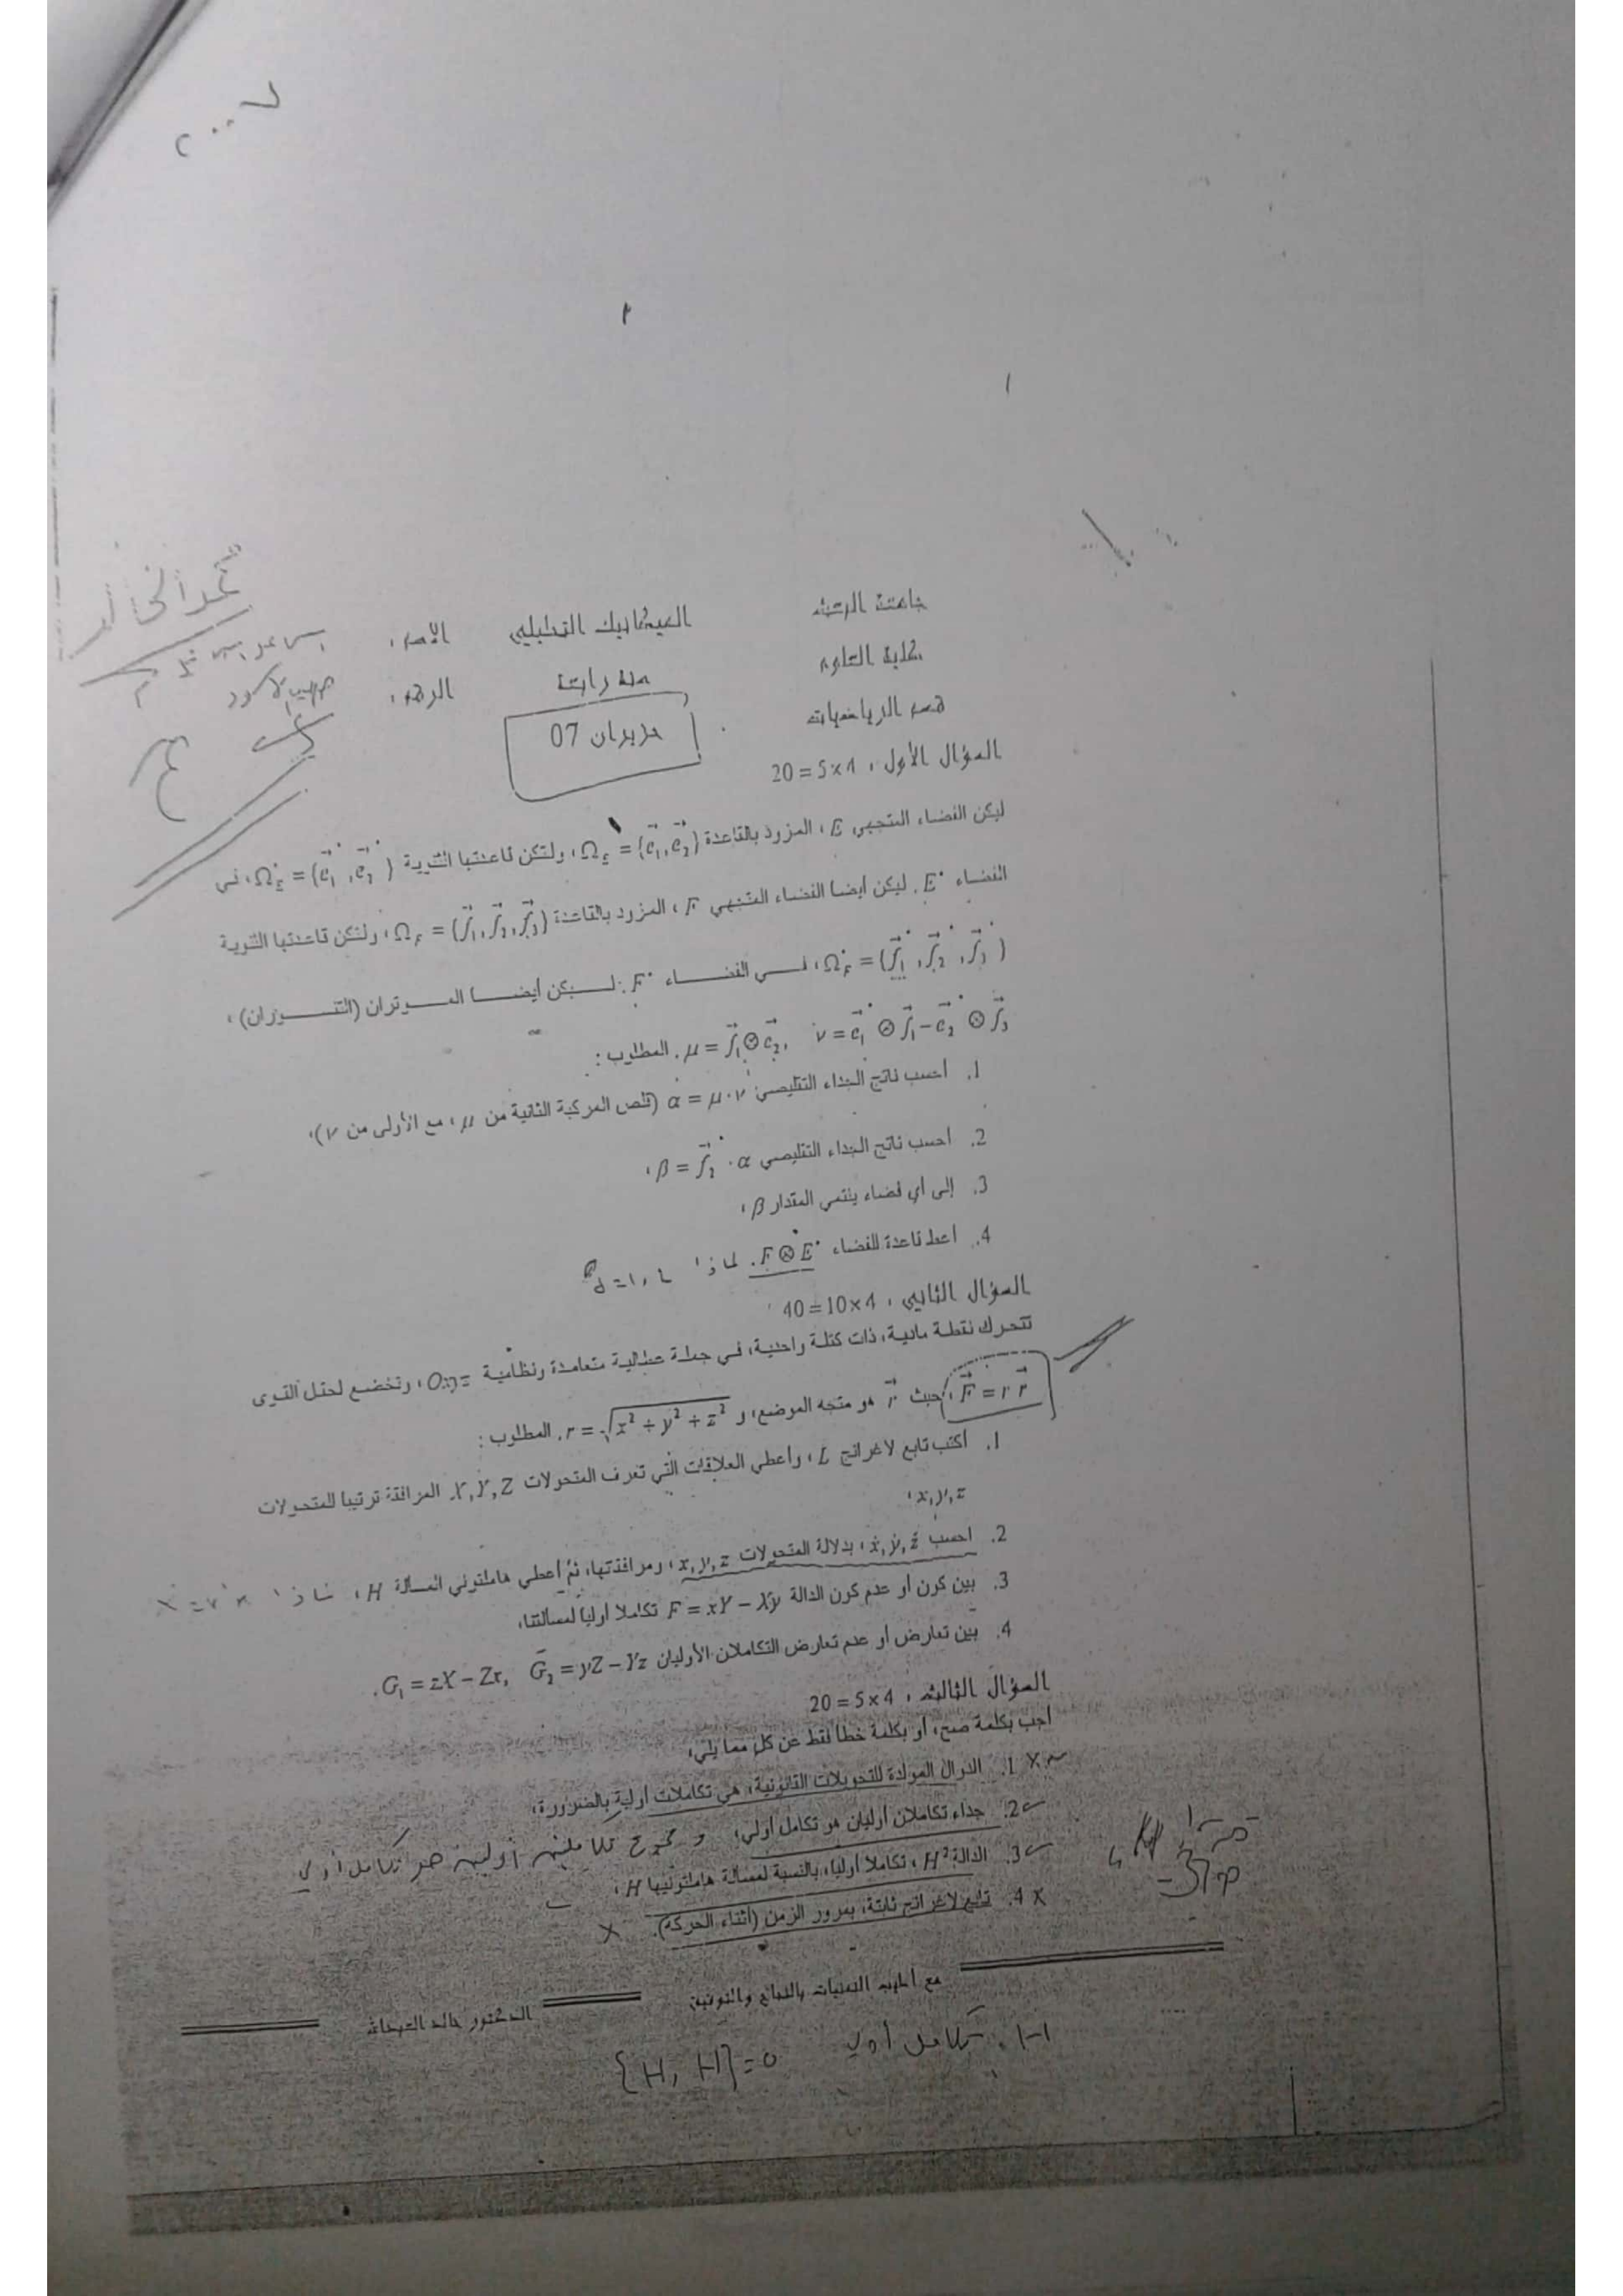 ٢٠٠٧
جامعة البعث الميكانيك التحليلي الاسم:
كلية العلوم سنة رابعة الرقم:
قسم الرياضيات حزيران 07
السؤال الأول: 4×5=20
ليكن الفضاء المتجهي E، المزود بالقاعدة Ω_E = (e⃗₁, e⃗₂)، ولتكن قاعدتها الثنوية Ω*_E = (e⃗₁*, e⃗₂*)، في
الفضاء E*. ليكن أيضا الفضاء المتجهي F، المزود بالقاعدة Ω_F = (f⃗₁, f⃗₂, f⃗₃)، ولتكن قاعدتها الثنوية
Ω*_F = (f⃗₁*, f⃗₂*, f⃗₃*)، في الفضاء F*. ليكن أيضا الموتران (التنسوران)،
μ = f⃗₁⊗e⃗₂, ν = e⃗₁*⊗f⃗₁ − e⃗₂*⊗f⃗₃. المطلوب:
1. أحسب ناتج الجداء التقليصي α = μ·ν (قلص المركبة الثانية من μ، مع الأولى من ν)،
2. أحسب ناتج الجداء التقليصي β = f⃗₂*·α،
3. إلى أي فضاء ينتمي المقدار β،
4. أعط قاعدة للفضاء F⊗E*. لماذا
السؤال الثاني: 4×10=40
تتحرك نقطة مادية، ذات كتلة واحدية، في جملة عطالية متعامدة ونظامية Oxyz، وتخضع لحقل القوى
F⃗ = r r⃗، حيث r⃗ هو متجه الموضع، و r = √(x² + y² + z²). المطلوب:
1. أكتب تابع لاغرانج L، وأعطي العلاقات التي تعرف المتحولات X,Y,Z. المرافقة ترتيبا للمتحولات
x,y,z،
2. احسب ẋ,ẏ,ż، بدلالة المتحولات x,y,z، ومرافقتها، ثم أعطي هاملتوني المسألة H،
3. بين كون أو عدم كون الدالة F = xY − Xy تكاملا أوليا لمسألتنا،
4. بين تعارض أو عدم تعارض التكاملان الأوليان G₁ = zX − Zx, G₂ = yZ − Yz.
السؤال الثالث: 4×5=20
أجب بكلمة صح، أو بكلمة خطأ فقط عن كل مما يلي،
X 1. الدوال المولدة للتحويلات القانونية، هي تكاملات أولية بالضرورة،
2. جداء تكاملان أوليان هو تكامل أولي، و مجموع تكاملين أوليين هو تكامل أولي
3. الدالة H²، تكاملا أوليا، بالنسبة لمسألة هاملتونيها H،
X 4. تابع لاغرانج ثابتة، بمرور الزمن (أثناء الحركة). X
مع أطيب التمنيات بالنجاح والتوفيق
الدكتور خالد
H تكامل أولي {H, H}=0